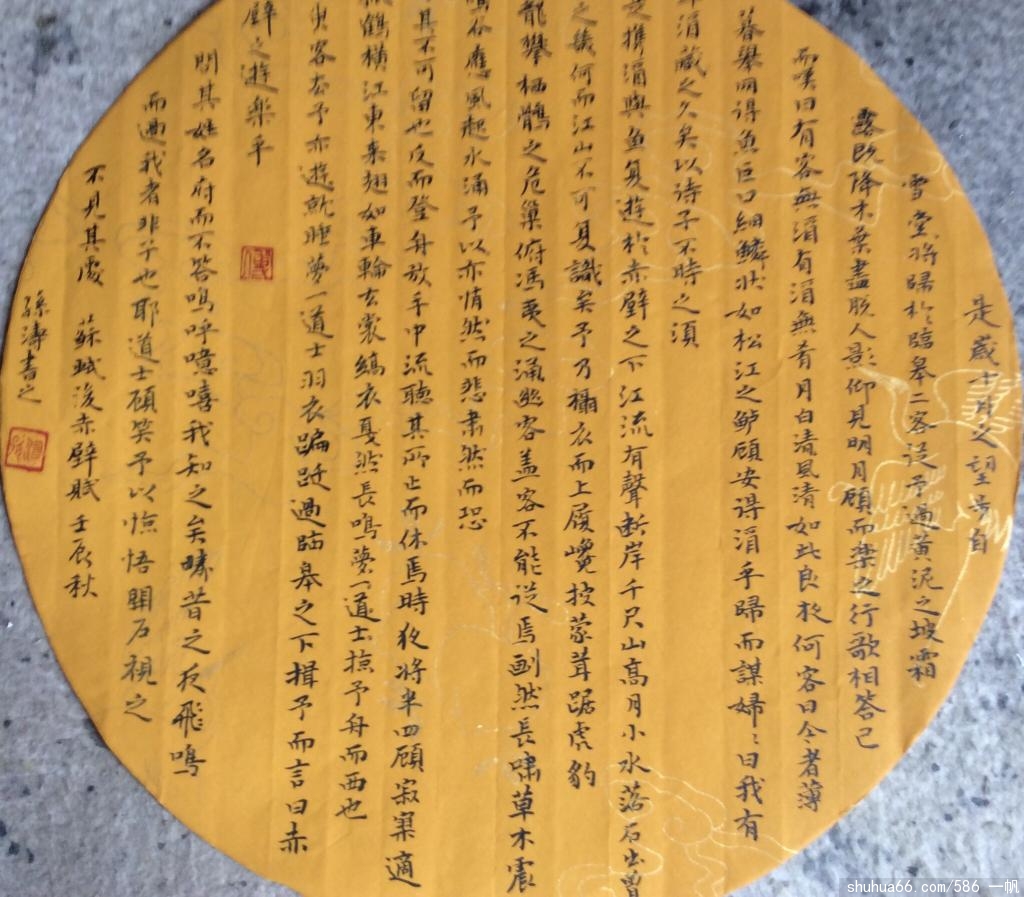 是歲十月之望步自
雪堂將歸於臨皋二客從予過黃泥之坡霜
露既降木葉盡脫人影仰見明月顧而樂之行歌相答已
而嘆曰有客無酒有酒無肴月白清風清如此良夜何客曰今者薄
暮舉網得魚巨口細鱗狀如松江之鱸顧安得酒乎歸而謀婦〻曰我有
酒藏之久矣以待子不時之須
攜酒與魚复遊於赤壁之下江流有聲斷岸千尺山高月小水落石出曾
之幾何而江山不可复識矣予乃攝衣而上履巉披蒙茸踞虎豹
龍攀栖鶻之危巢俯馮夷之涌幽客盖客不能從焉劃然長嘯草木震
鳴谷應風起水涌予以亦悄然而悲肅然而恐
其不可留也反而登舟放乎中流聽其所止而休焉時夜將半四顧寂寥適
鶴橫江東來翅如車輪玄裳縞衣戛然長鳴夢一道士掠予舟而西也
客去予亦遊就睡夢一道士羽衣蹁躚過臨皋之下揖予而言曰赤
壁之遊樂乎
問其姓名俯而不答嗚呼噫嘻我知之矣疇昔之夜飛鳴
而過我者非子也耶道士顧笑予以憮悟開戶視之
不見其處 蘇軾後赤壁賦 壬辰秋
孫濤書之
shuhua66.com/586 一帆